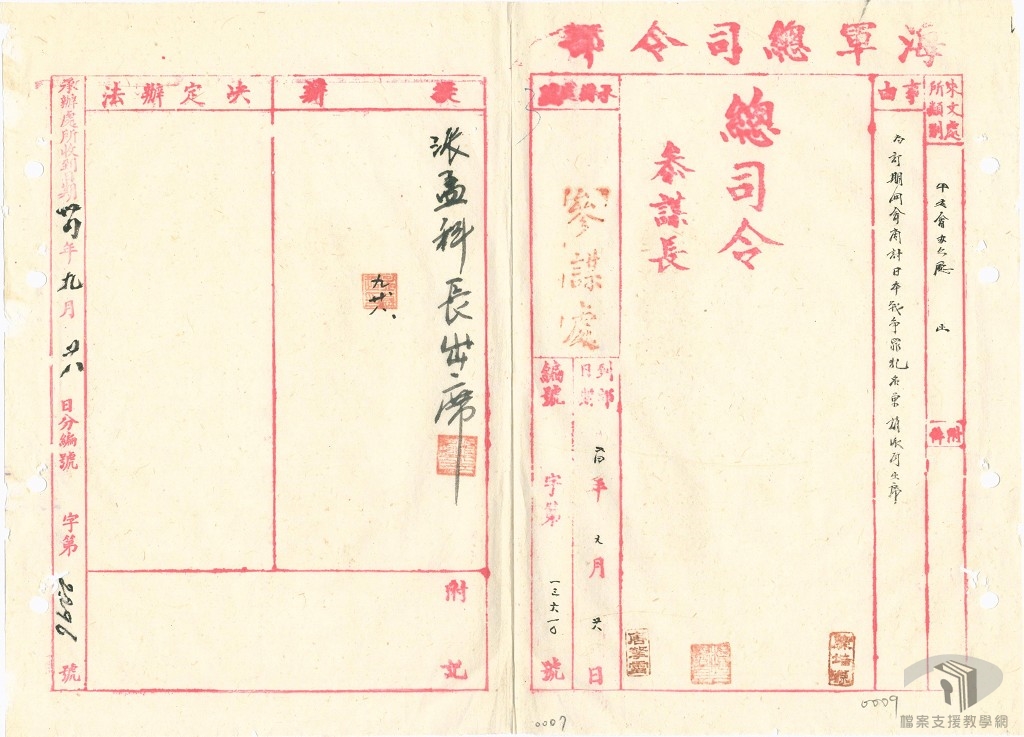 海軍總司令部
來文處所類別
附件
事由
為訂期開會商討日本戰爭罪犯名單請派員出席
總司令
參謀長
參謀處
到部日期
年九月廿八日
編號
字第一三六一〇號
擬辦
派孟科長出席
九、廿八、
決定辦法
附記
承辦處所收到日期
年九月廿八日分編號
字第
號
0007
0009
檔案支援教學網